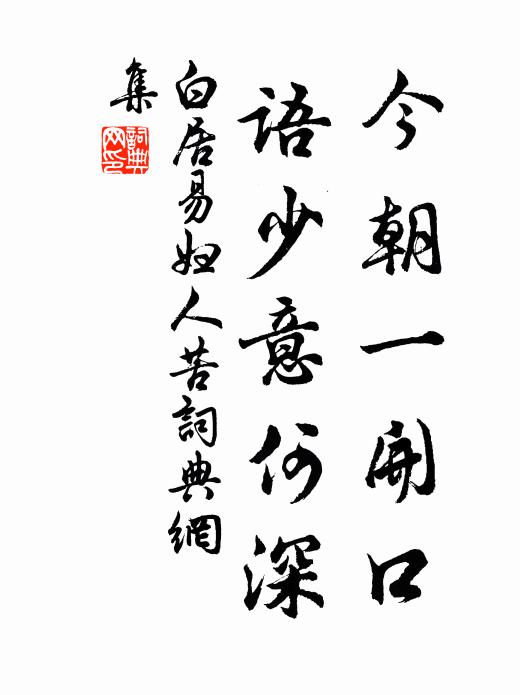 今朝一開口
語少意何深
白居易婦人苦詞典網
集
詞典网印